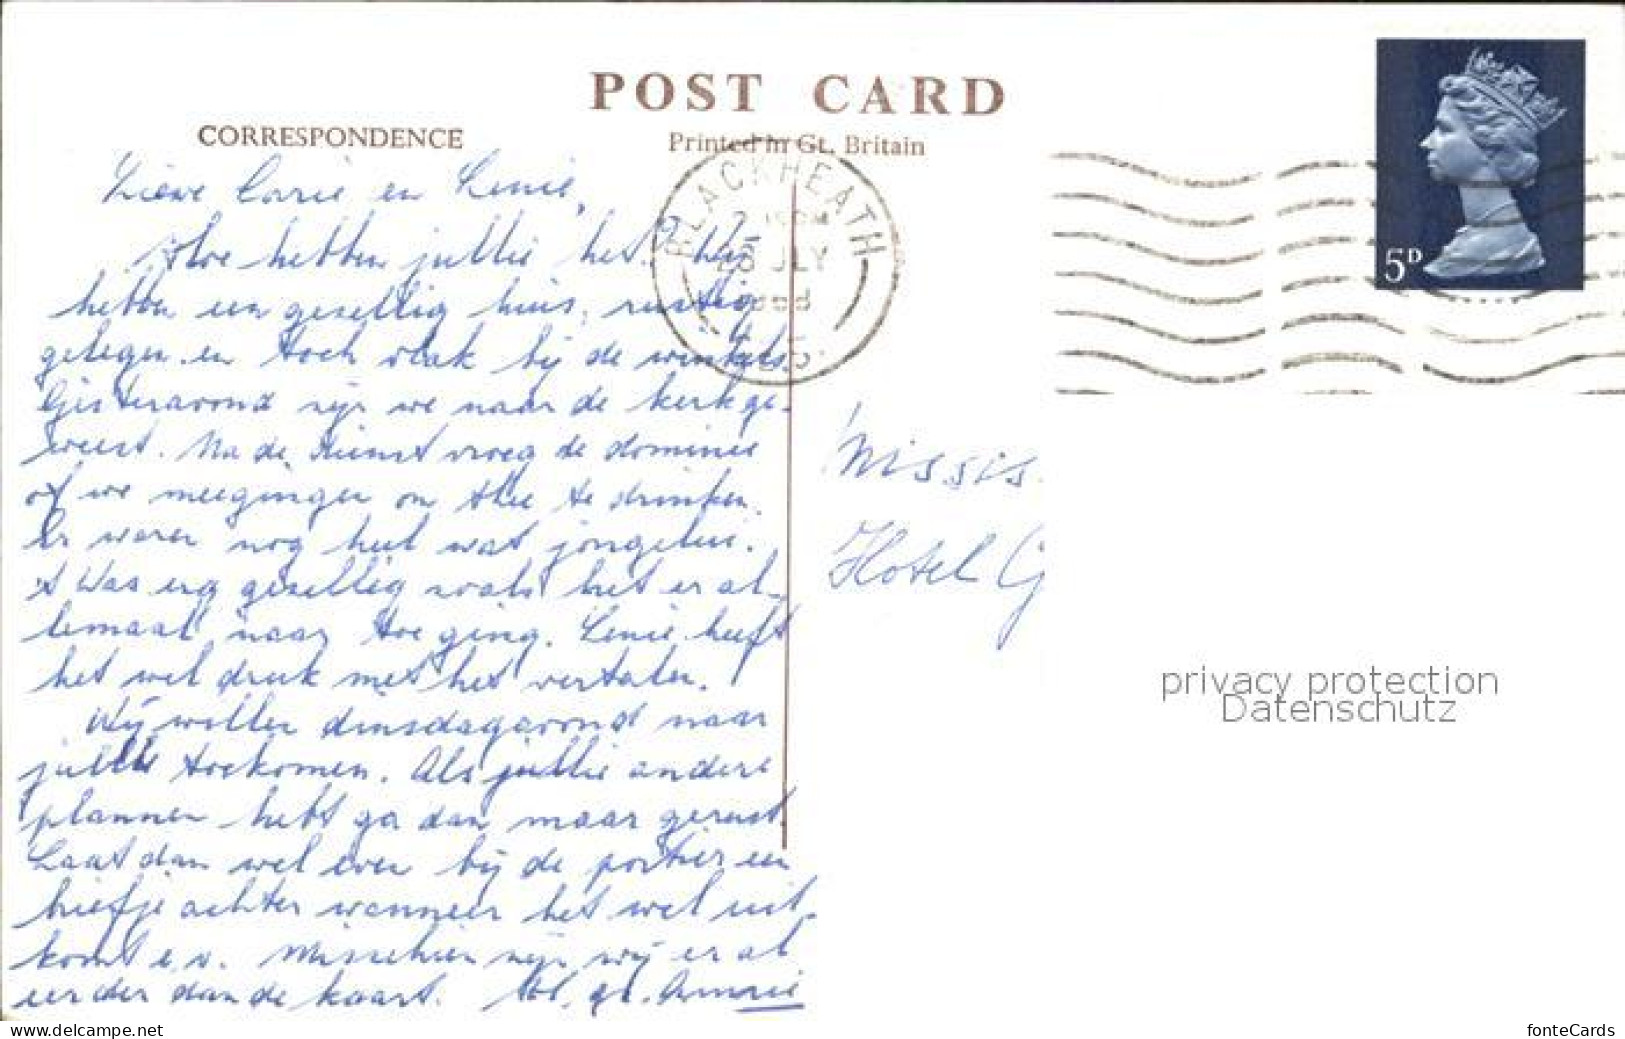 POST CARD
CORRESPONDENCE
Printed in Gt. Britain
BLACKHEATH
JLY
5D
Lieve Corrie en Lenie,
Hoe hebben jullie het? Wij
hebben een gezellig huis, rustig
gelegen en toch vlak bij de winkels.
Gisteravond zijn we naar de kerk ge-
weest. Na de dienst vroeg de dominee
of we meegingen om thee te drinken.
Er waren nog heel wat jongelui.
't Was erg gezellig zoals het er al-
lemaal naar toe ging. Lenie heeft
het wel druk met het vertalen.
Wij willen dinsdagavond naar
jullie toekomen. Als jullie andere
plannen hebt ga dan maar gerust.
Laat dan wel even bij de portier een
briefje achter wanneer het wel uit-
komt e.v. Misschien zijn wij er al
eerder dan de kaart. gr. Annie
Missis
Hotel G
privacy protection
Datenschutz
www.delcampe.net
fonteCards